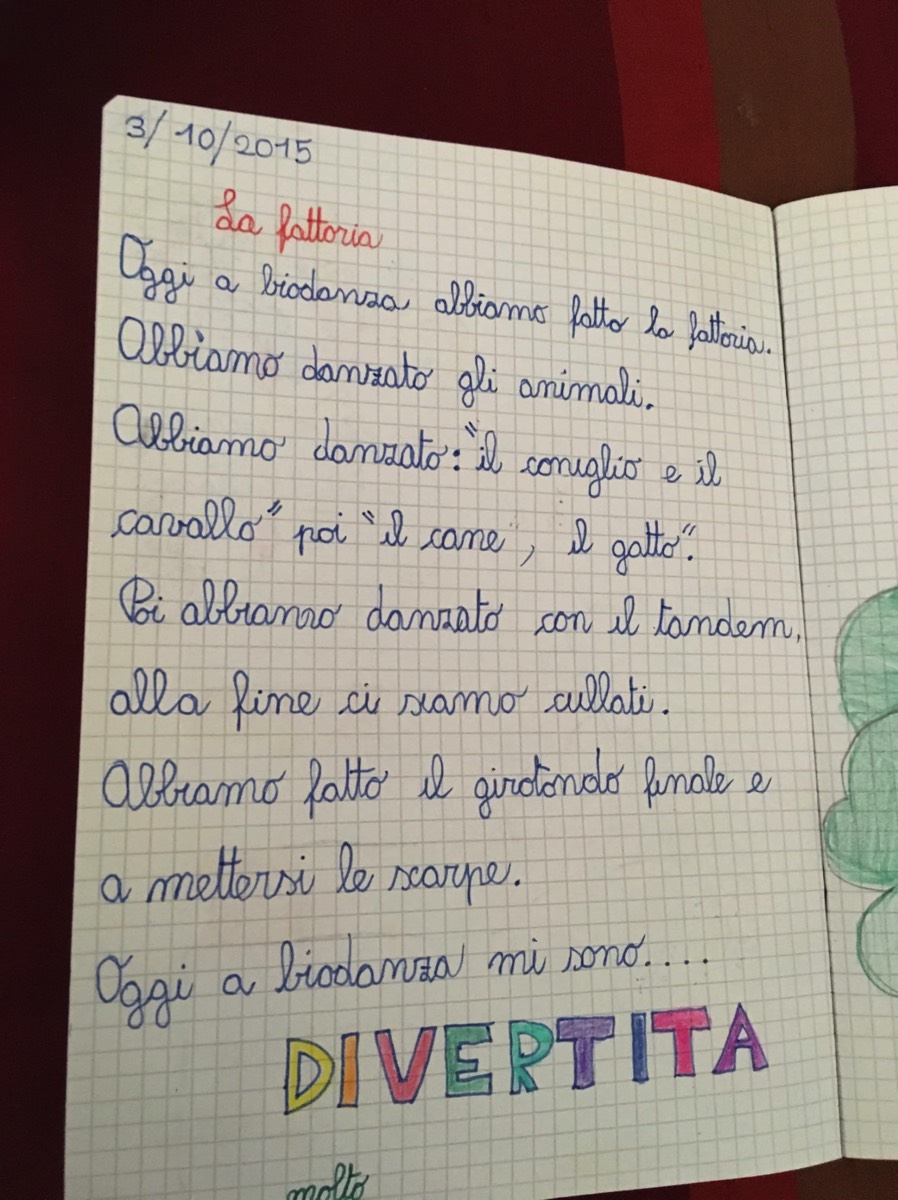 3/10/2015
La fattoria
Oggi a biodanza abbiamo fatto la fattoria.
Abbiamo danzato gli animali.
Abbiamo danzato: "il coniglio e il
cavallo" poi "il cane", il gatto".
Poi abbiamo danzato con il tandem,
alla fine ci siamo cullati.
Abbiamo fatto il girotondo finale e
a mettersi le scarpe.
Oggi a biodanza mi sono....
DIVERTITA
molto